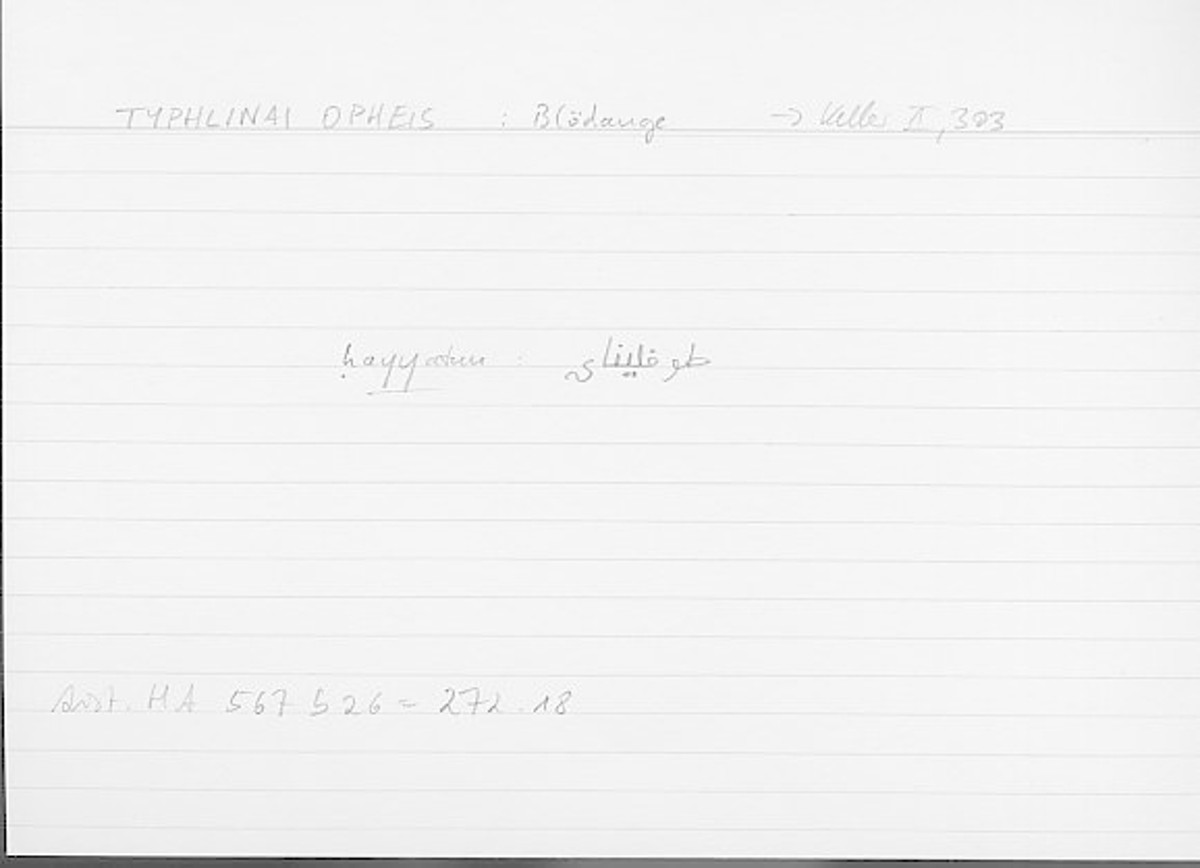 TYPHLINAI OPHEIS : Blödauge → Keller II, 303
ḥayyatun : طوفلیناي
Arist. HA 567 b 26 = 272.18